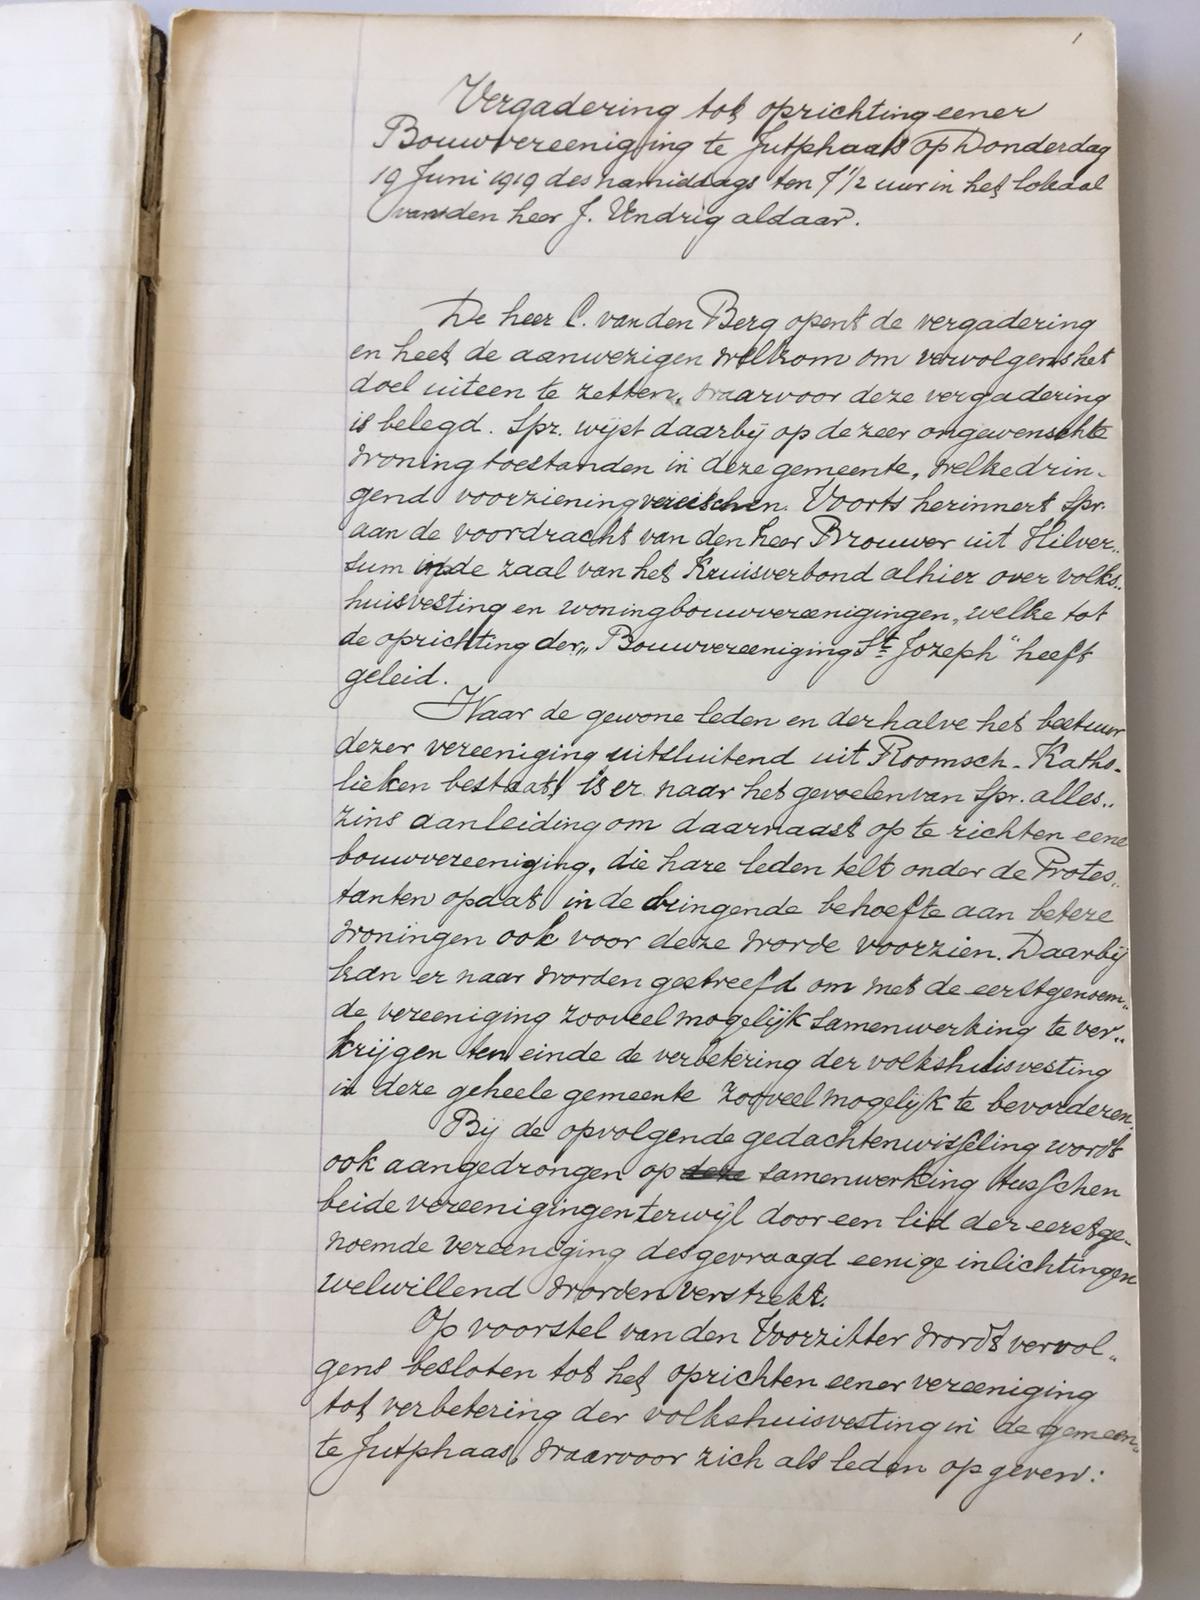 1
Vergadering tot oprichting eener
Bouwvereeniging te Jutphaas op Donderdag
19 Juni 1919 des namiddags ten 7 1/2 uur in het lokaal
van den heer J. Vendrig aldaar.
De heer C. van den Berg opent de vergadering
en heet de aanwezigen welkom om vervolgens het
doel uiteen te zetten, waarvoor deze vergadering
is belegd. Spr. wijst daarbij op de zeer ongewenschte
woningtoestanden in deze gemeente, welke drin-
gend voorziening vereischen. Voorts herinnert Spr.
aan de voordracht van den heer Brouwer uit Hilver-
sum in de zaal van het Kruisverbond alhier over volks-
huisvesting en woningbouwvereenigingen, welke tot
de oprichting der „Bouwvereeniging St. Jozeph" heeft
geleid.
Waar de gewone leden en derhalve het bestuur
dezer vereeniging uitsluitend uit Roomsch-Katho-
lieken bestaat, is er naar het gevoelen van Spr. alles-
zins aanleiding om daarnaast op te richten eene
bouwvereeniging, die hare leden telt onder de Protes-
tanten opdat in de dringende behoefte aan betere
woningen ook voor deze worde voorzien. Daarbij
kan er naar worden gestreefd om met de eerstgenoem-
de vereeniging zooveel mogelijk samenwerking te ver-
krijgen ten einde de verbetering der volkshuisvesting
in deze geheele gemeente zooveel mogelijk te bevorderen.
Bij de opvolgende gedachtenwisseling wordt
ook aangedrongen op samenwerking tusschen
beide vereenigingen terwijl door een lid der eerstge-
noemde vereeniging desgevraagd eenige inlichtingen
welwillend worden verstrekt.
Op voorstel van den Voorzitter wordt vervol-
gens besloten tot het oprichten eener vereeniging
tot verbetering der volkshuisvesting in de gemeen-
te Jutphaas, waarvoor zich als leden opgeven: